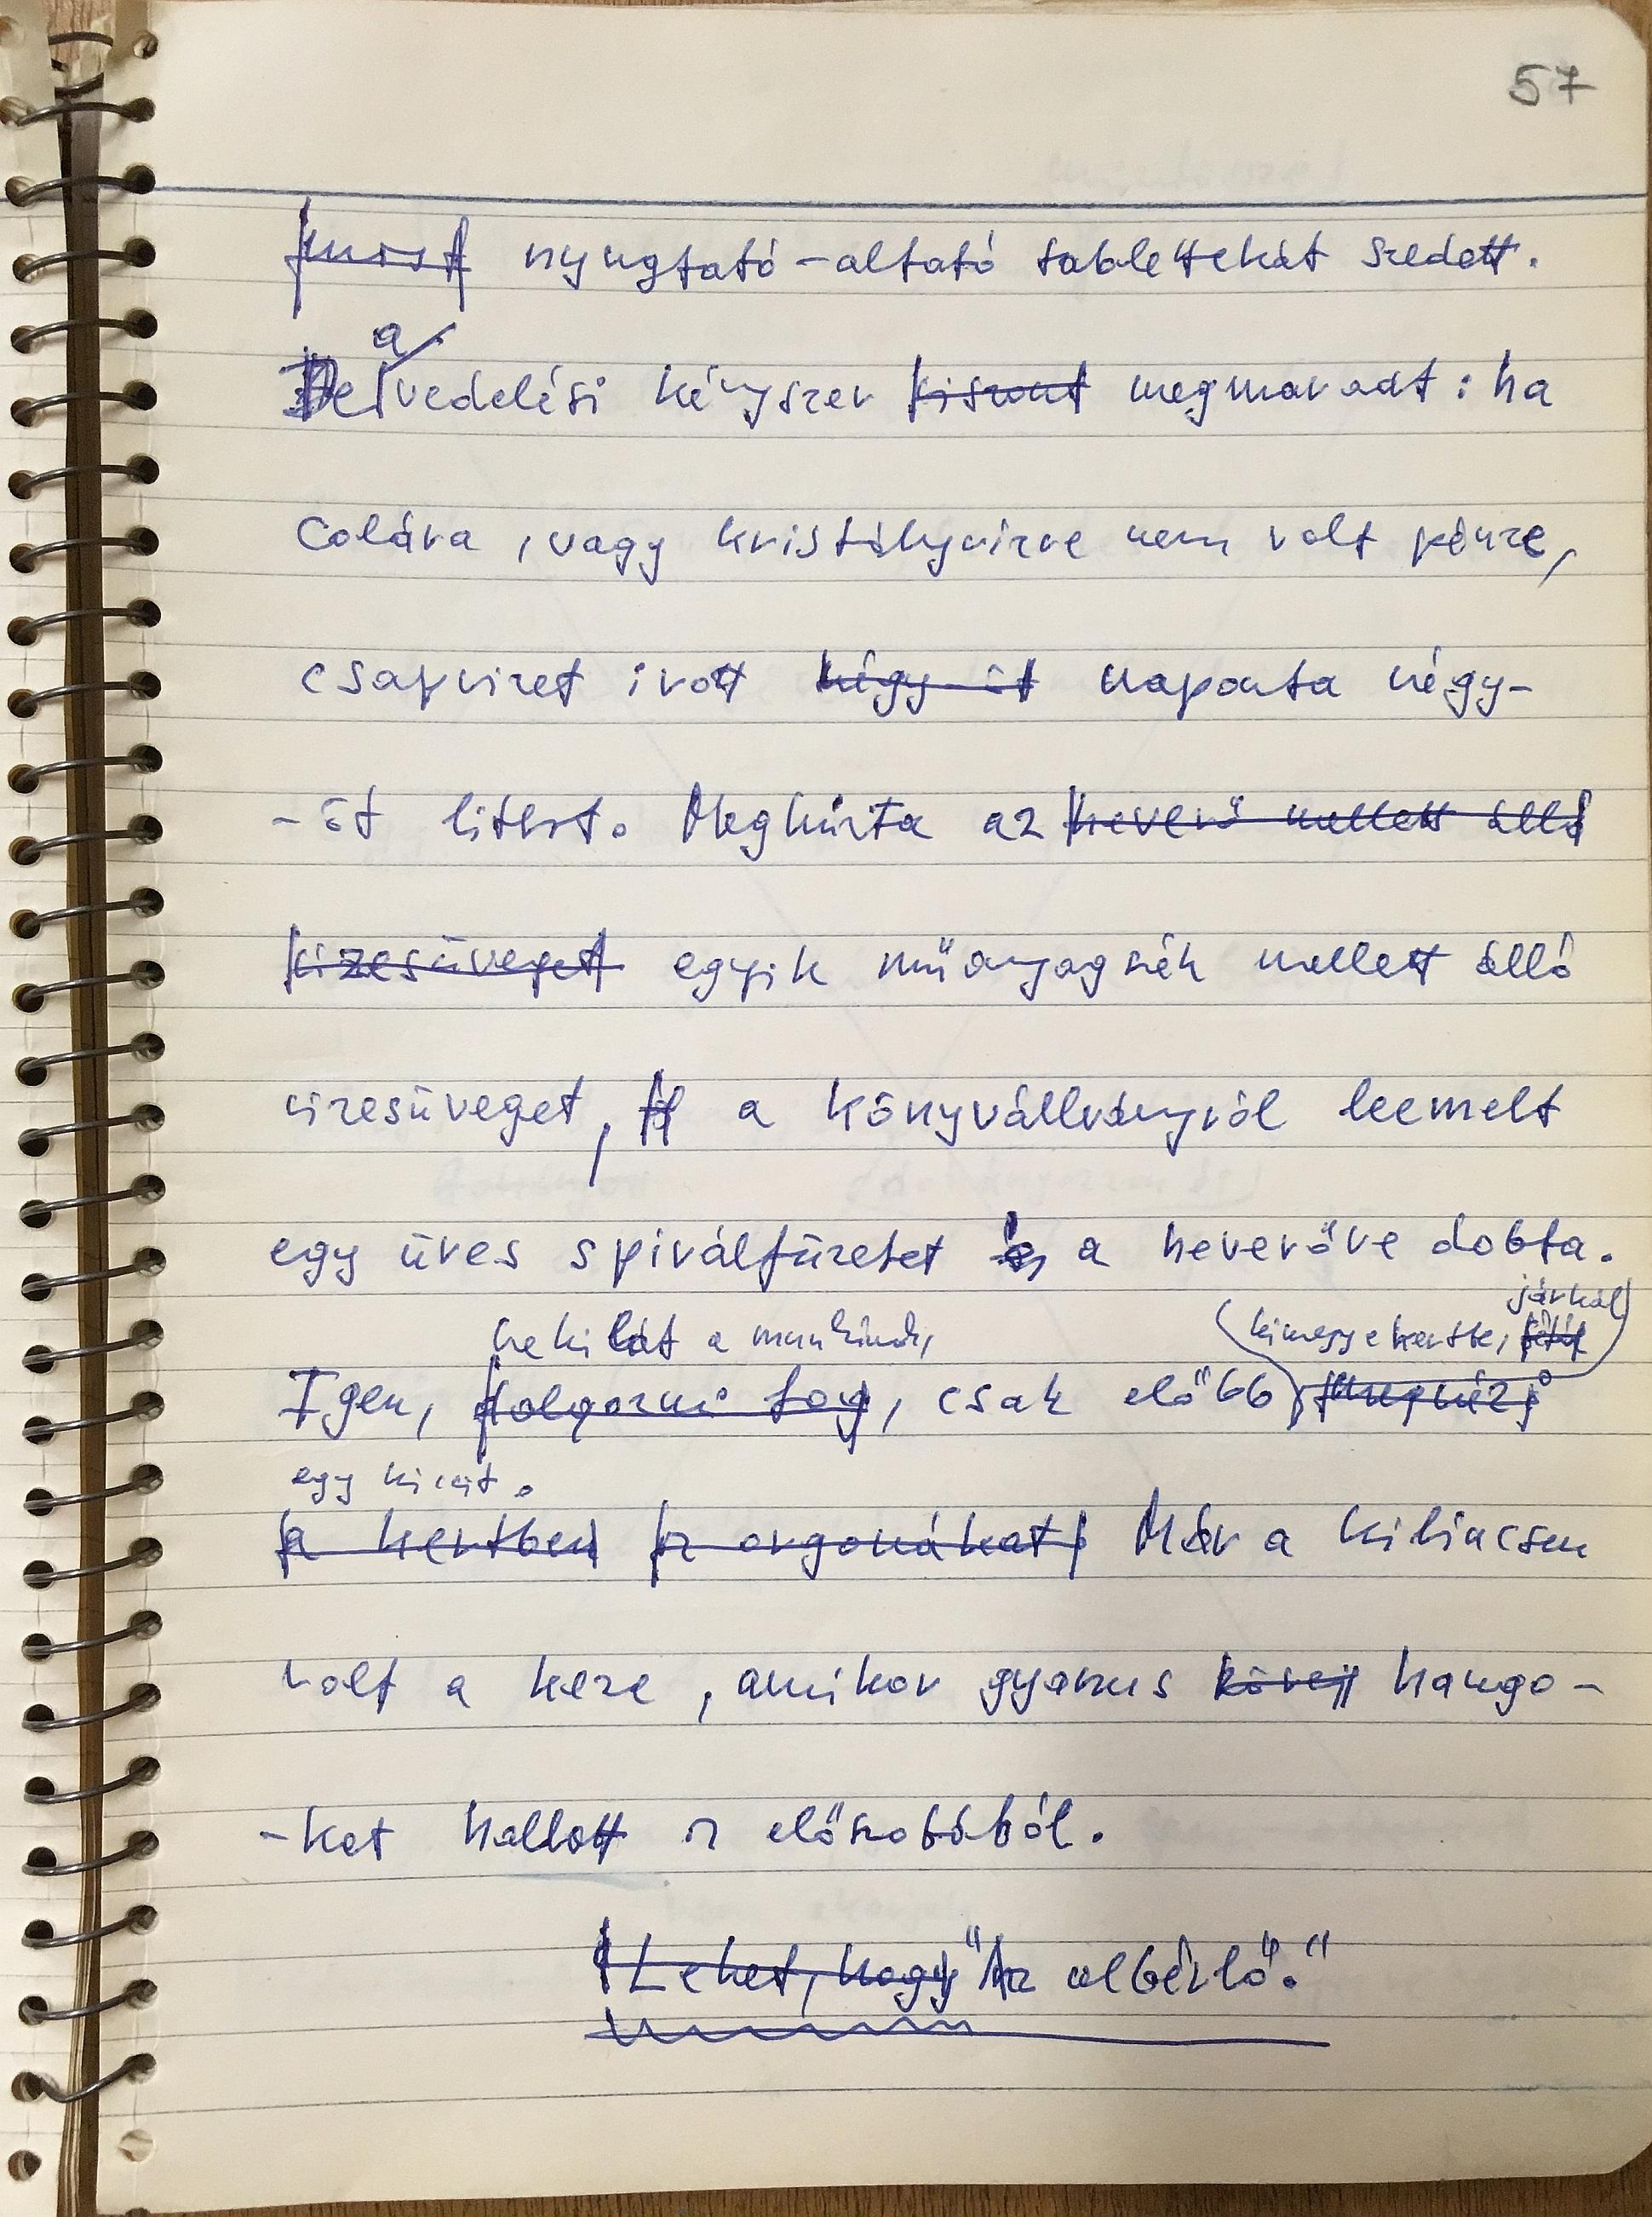 57
most nyugtató-altató tablettákat szedett.
a
De vedelési kényszer viszont megmaradt: ha
Colára, vagy kristályvízre nem volt pénze,
csapvizet ivott négy-öt naponta négy-
-öt litert. Meghúzta az heverő mellett álló
vizesüveget egyik műanyagszék mellett álló
vizesüveget, a könyvállványról leemelt
egy üres spirálfüzetet és a heverőre dobta.
nekilát a munkának, kimegy a kertbe, járkál
Igen, dolgozni fog, csak előbb megnézi
egy kicsit.
a kertben az orgonákat. Már a kilincsen
volt a keze, amikor gyanús hango-
-kat hallott az előszobából.
Lehet, hogy "Az albérlő."